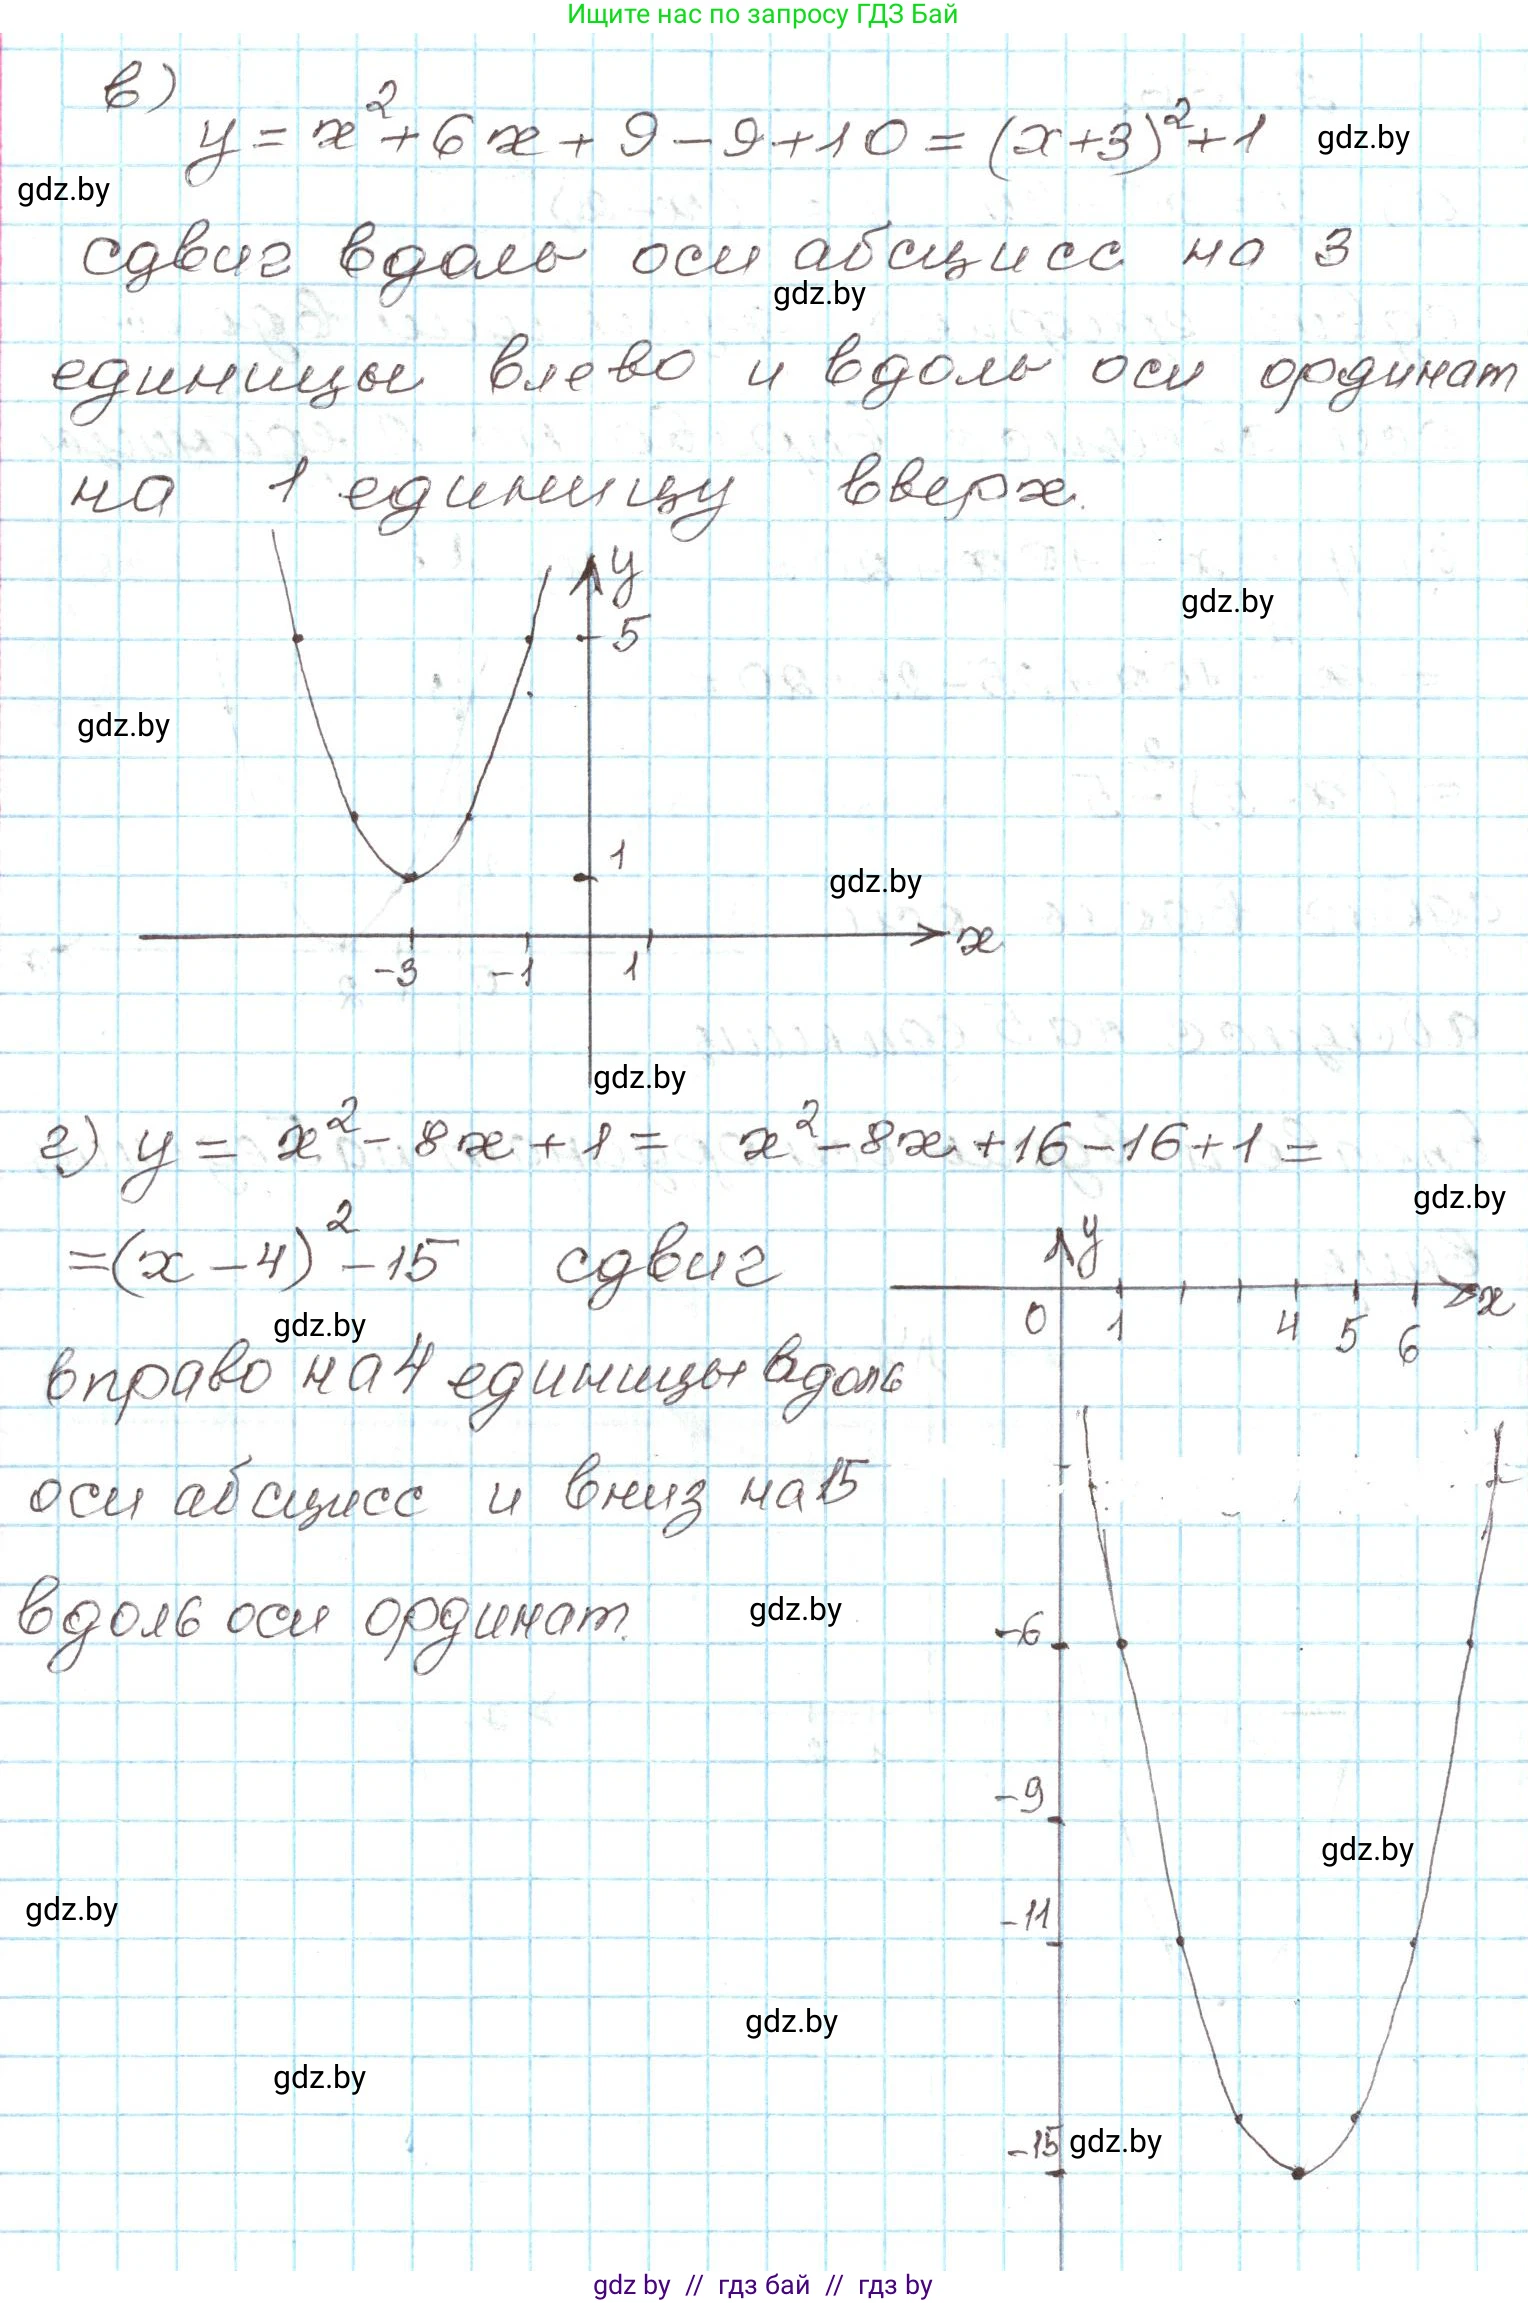 Ищите нас по запросу ГДЗ Бай
в)
y = x² + 6x + 9 - 9 + 10 = (x+3)² + 1
gdz.by
gdz.by
сдвиг вдоль оси абсцисс на 3
gdz.by
единицы влево и вдоль оси ординат
на 1 единицу вверх.
y
5
gdz.by
gdz.by
1
gdz.by
x
-3 -1 1
gdz.by
г) y = x² - 8x + 1 = x² - 8x + 16 - 16 + 1 =
gdz.by
= (x - 4)² - 15 сдвиг
y
x
0 1 4 5 6
gdz.by
вправо на 4 единицы вдоль
оси абсцисс и вниз на 15
вдоль оси ординат.
gdz.by
-6
-9
gdz.by
gdz.by
-11
gdz.by
gdz.by
-15
gdz.by
gdz by // гдз бай // гдз by